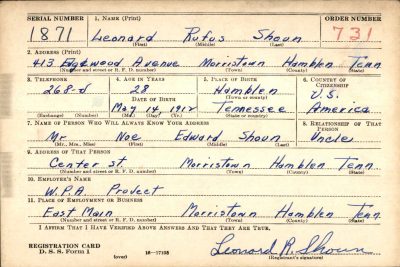 SERIAL NUMBER 1. NAME (Print) ORDER NUMBER
1871 Leonard Rufus Shoun 731
(First) (Middle) (Last)
2. ADDRESS (Print)
413 Avenue Morristown Hamblen Tenn
(Number and street or R. F. D. number) (Town) (County) (State)
3. TELEPHONE 4. AGE IN YEARS 5. PLACE OF BIRTH 6. COUNTRY OF CITIZENSHIP
268-J 28 Hamblen U.S.
DATE OF BIRTH (Town or county)
May 14, 1912 Tennessee America
(Exchange) (Number) (Mo.) (Day) (Yr.) (State or country)
7. NAME OF PERSON WHO WILL ALWAYS KNOW YOUR ADDRESS 8. RELATIONSHIP OF THAT PERSON
Mr Noe Edward Shoun Uncle
(Mr., Mrs., Miss) (First) (Middle) (Last)
9. ADDRESS OF THAT PERSON
Center st. Morristown Hamblen Tenn
(Number and street or R. F. D. number) (Town) (County) (State)
10. EMPLOYER'S NAME
W.P.A. Project
11. PLACE OF EMPLOYMENT OR BUSINESS
East Main Morristown Hamblen Tenn
(Number and street or R. F. D. number) (Town) (County) (State)
I AFFIRM THAT I HAVE VERIFIED ABOVE ANSWERS AND THAT THEY ARE TRUE.
REGISTRATION CARD
D. S. S. Form 1 (over) 16—17105 Leonard R. Shoun
(Registrant's signature)